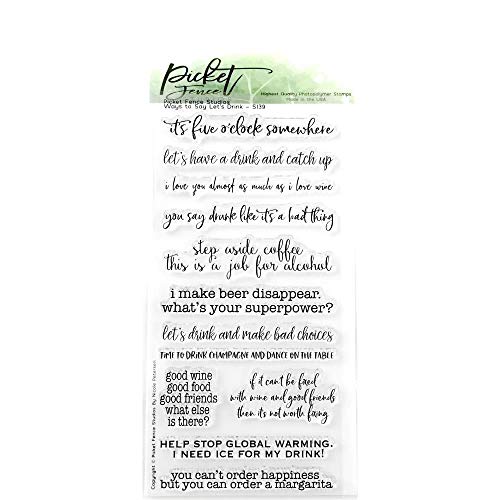 Picket
Fence
Picket Fence Studios
Ways to Say Let's Drink - S139
Highest Quality Photopolymer Stamps
Made in the USA
it's five o'clock somewhere
let's have a drink and catch up
i love you almost as much as i love wine
you say drunk like it's a bad thing
step aside coffee
this is a job for alcohol
i make beer disappear.
what's your superpower?
let's drink and make bad choices
TIME TO DRINK CHAMPAGNE AND DANCE ON THE TABLE
good wine
good food
good friends
what else
is there?
if it can't be fixed
with wine and good friends
then it's not worth fixing
HELP STOP GLOBAL WARMING.
I NEED ICE FOR MY DRINK!
you can't order happiness
but you can order a margarita
Copyright © Picket Fence Studios By Nicole Peterson